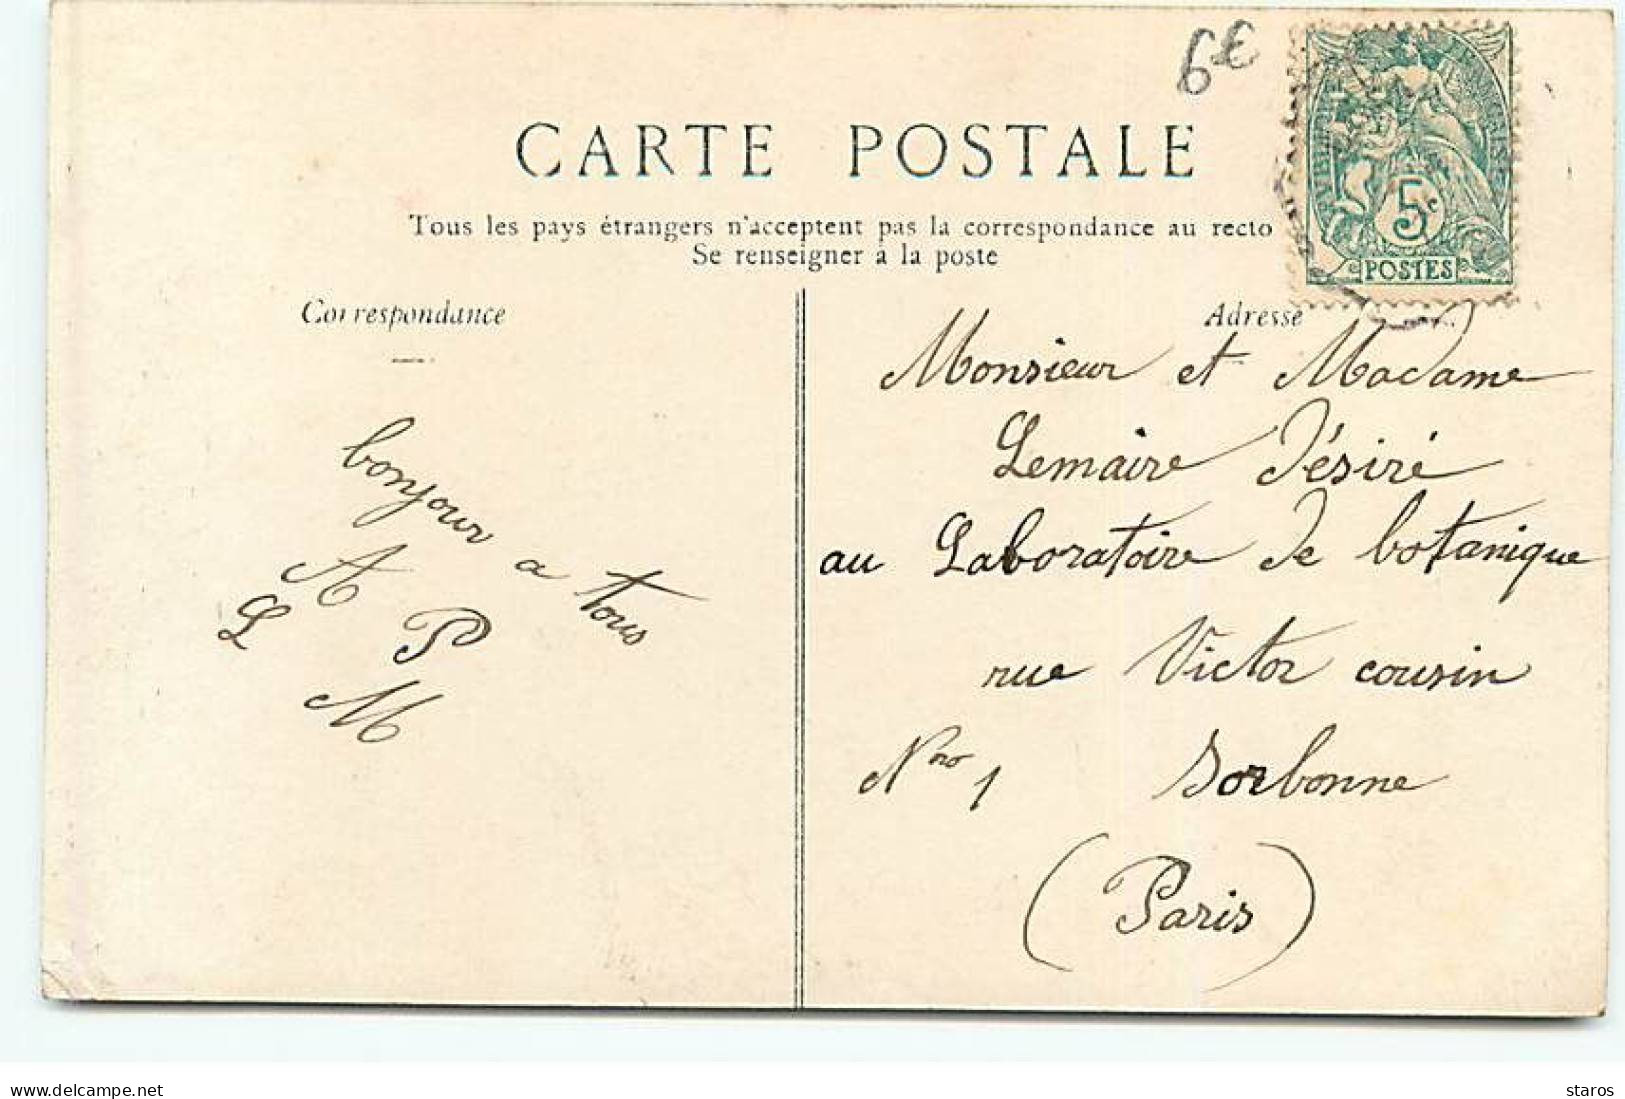 6€
CARTE POSTALE
Tous les pays étrangers n'acceptent pas la correspondance au recto
Se renseigner à la poste
5c
POSTES
Correspondance
Adresse
bonjour a tous
A
L P
M
Monsieur et Madame
Lemaire Désiré
au Laboratoire de botanique
rue Victor cousin
Nro 1 Sorbonne
(Paris)
www.delcampe.net
staros